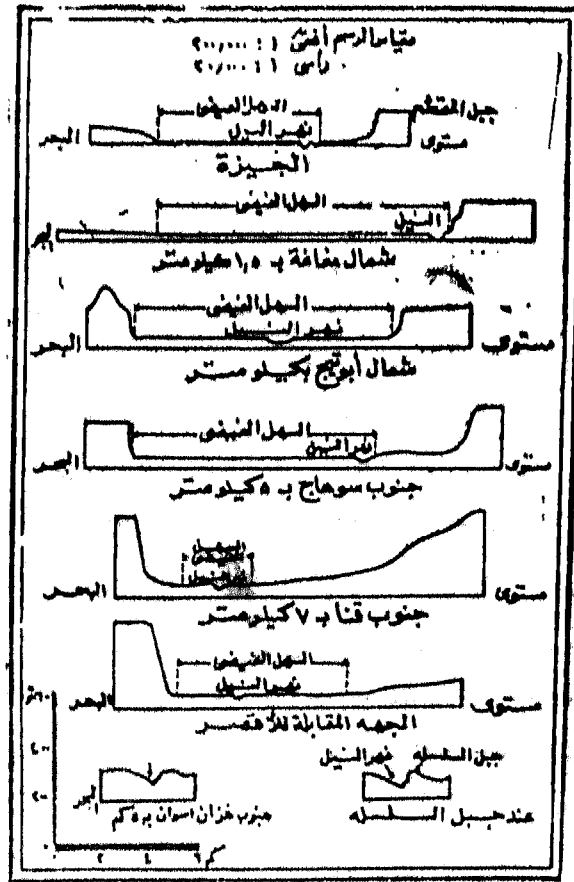 مقياس الرسم أفقى ١ : ٢٠٠,٠٠٠
رأسى ١ : ٢٠,٠٠٠
جبل المقطم
السهل الفيضى
نهر النيل
مستوى البحر
الجيزة
السهل الفيضى
النيل
البحر
شمال مغاغة بـ ١,٥ كيلومتر
السهل الفيضى
نهر النيل
مستوى البحر
شمال أبوتيج بكيلو متر
السهل الفيضى
نهر النيل
مستوى البحر
جنوب سوهاج بـ ٥ كيلو متر
السهل الفيضى
نهر النيل
مستوى البحر
جنوب قنا بـ ٧ كيلو متر
السهل الفيضى
نهر النيل
مستوى البحر
الجهه المقابلة للأقصر
جبل السلسله
نهر النيل
البحر
جنوب خزان اسوان بـ ٥ كم
عند جبل السلسله
متر
٤٠٠
٢٠٠
٠ ٢ ٤ ٦ كم